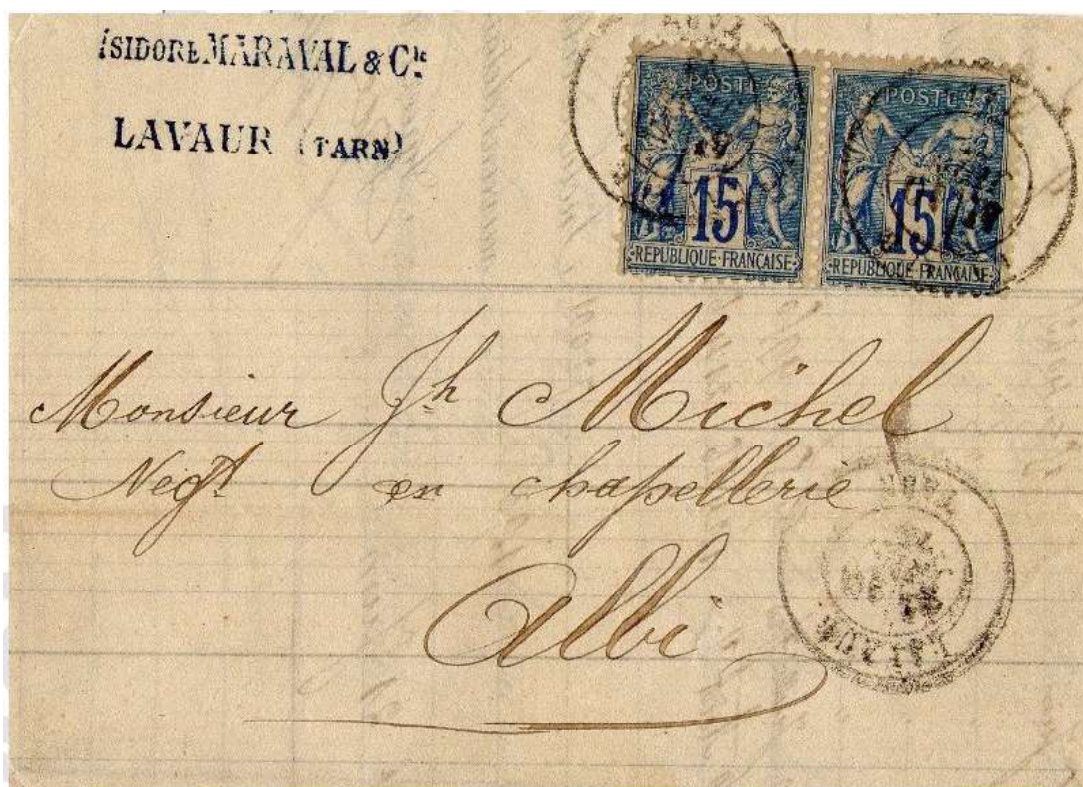 ISIDORE MARAVAL & Cie
LAVAUR (TARN)
POSTE
15
REPUBLIQUE FRANÇAISE
POSTE
15
REPUBLIQUE FRANÇAISE
Monsieur Jh Michel
Negt en chapellerie
Albi
LAVAUR